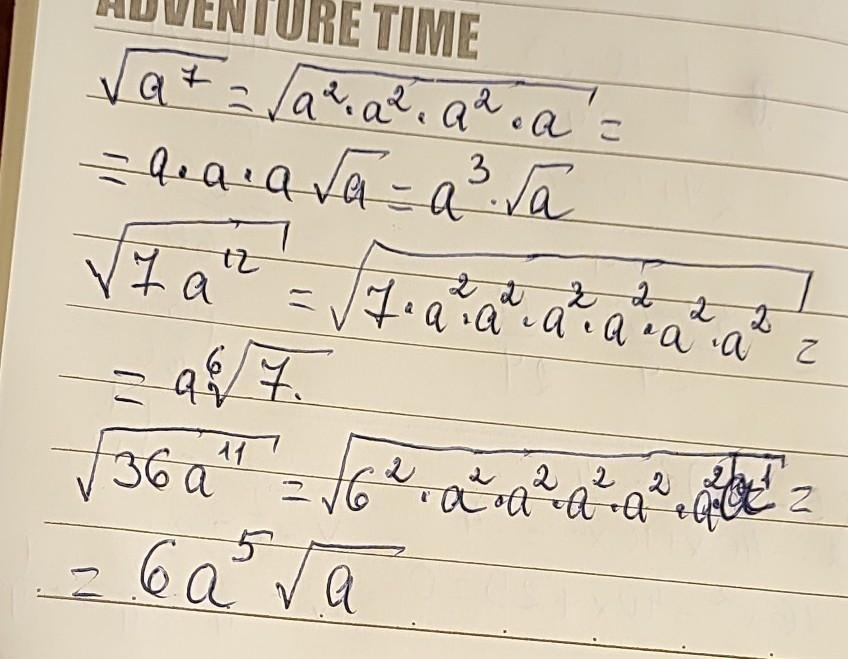 ADVENTURE TIME
√a⁷ = √a²·a²·a²·a =
= a·a·a √a = a³·√a
√7a¹² = √7·a²·a²·a²·a²·a²·a² =
= a⁶√7.
√36a¹¹ = √6²·a²·a²·a²·a²·a²·a¹ =
= 6a⁵√a